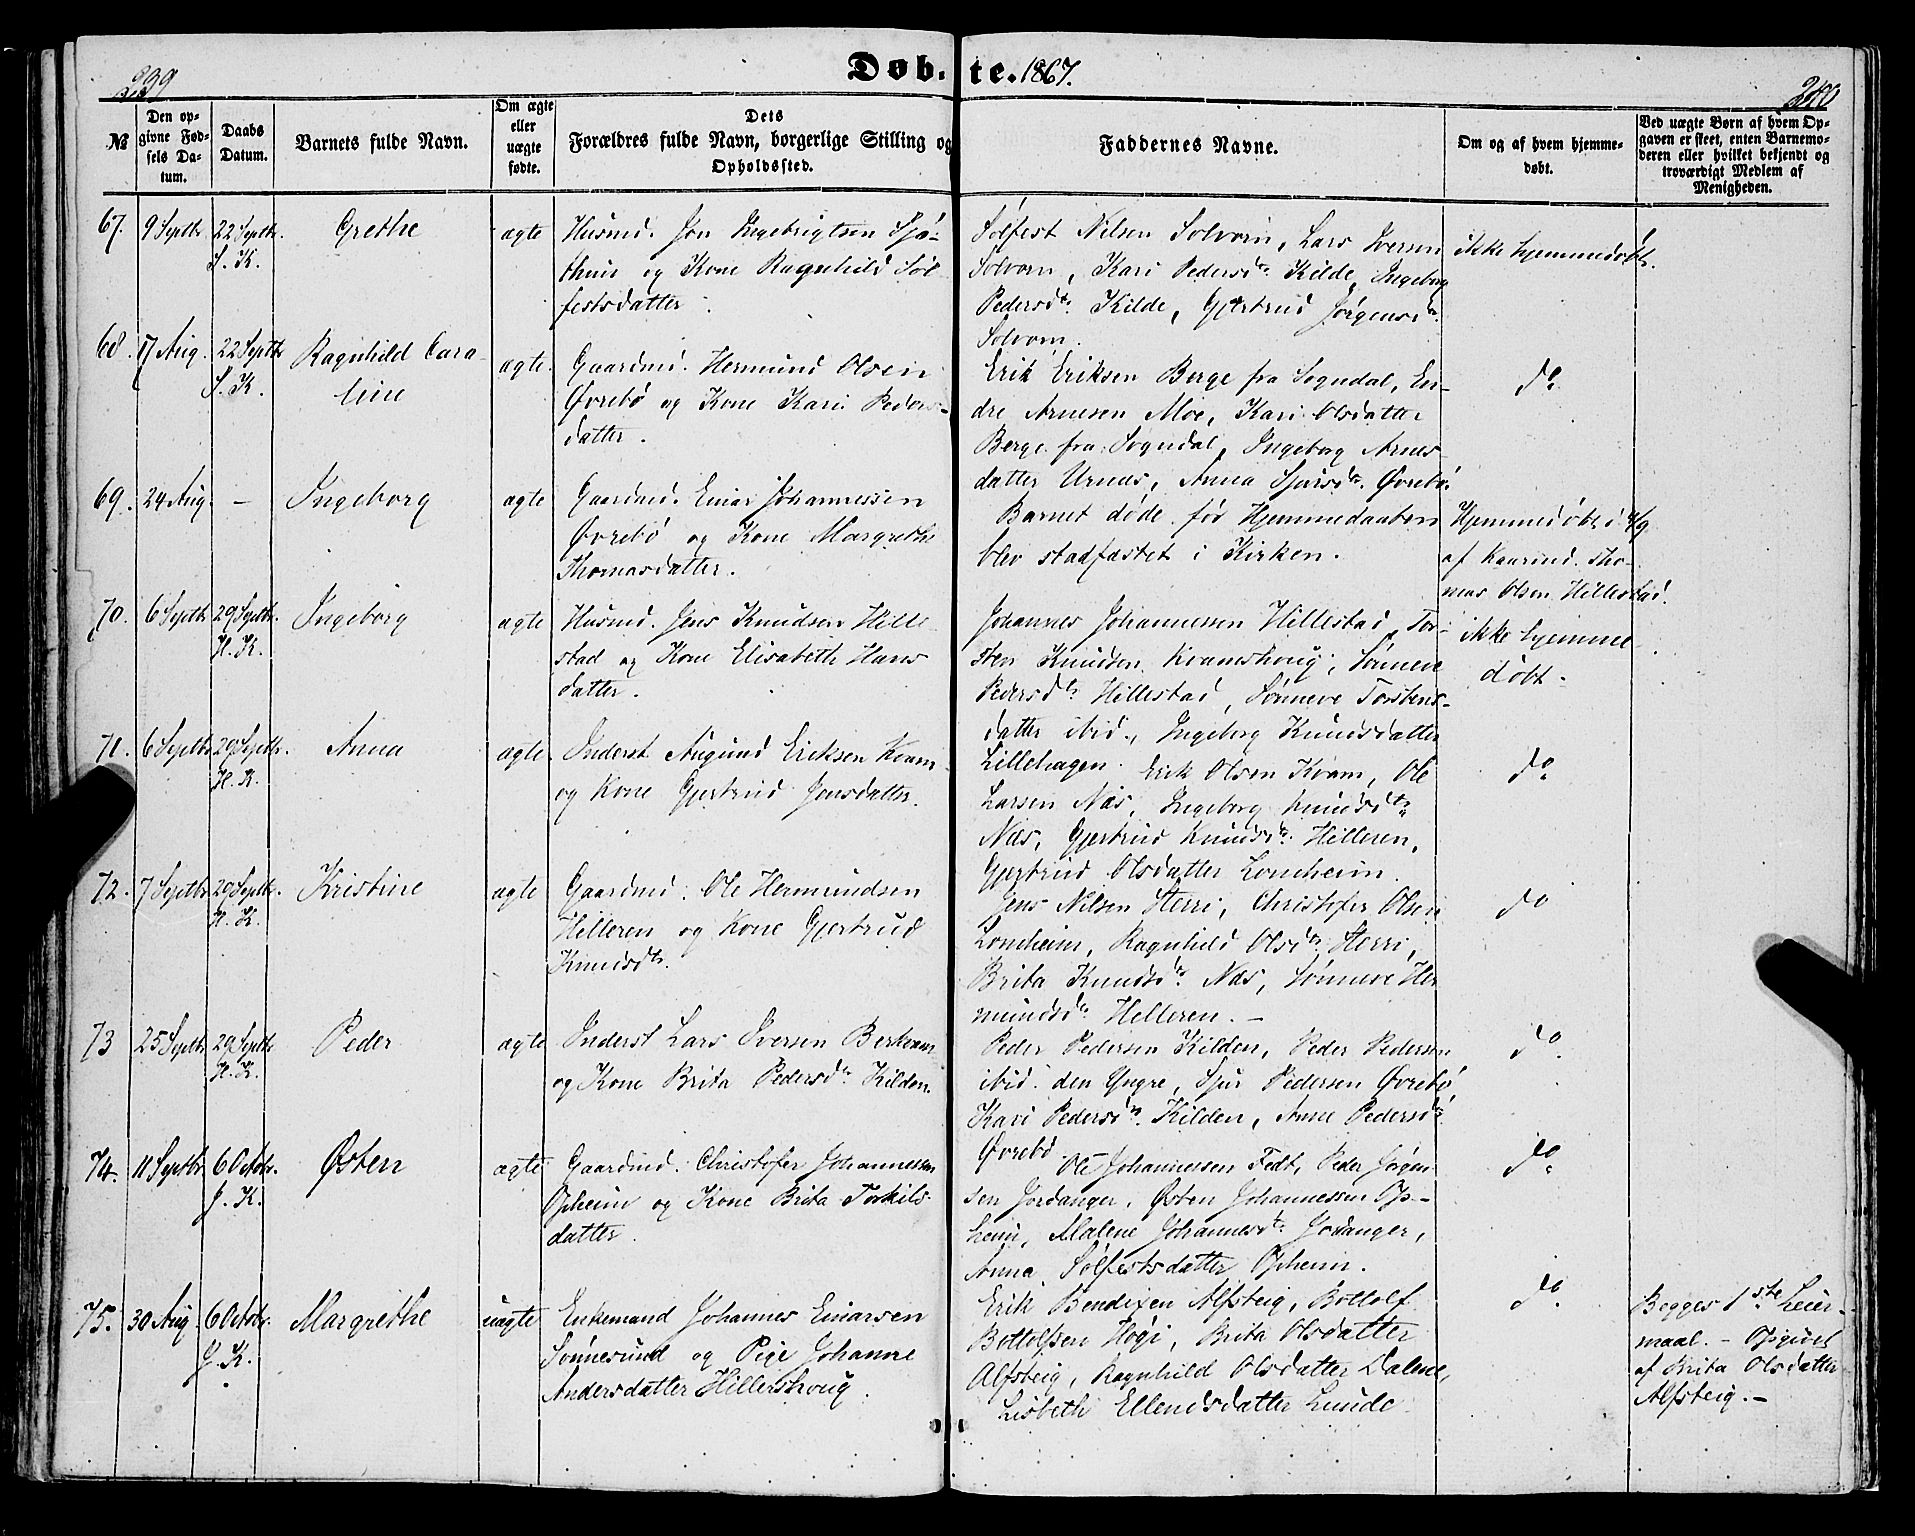 239
Døb- te. 1867.
240
№
Den op-
givne Fød-
sels Da-
tum.
Daabs
Datum.
Barnets fulde Navn.
Om ægte
eller
uægte
fødte.
Dets
Forældres fulde Navn, borgerlige Stilling og
Opholdssted.
Faddernes Navne.
Om og af hvem hjemme-
døbt.
Ved uægte Børn af hvem Op-
gaven er skeet, enten Barnemo-
deren eller hvilket bekjendt og
troværdigt Medlem af
Menigheden.
67. 9 Septbr 22 Septbr.
S. K.
Grethe
ægte
Husmd. Jon Ingebrigtsen Sjø-
thun og Kone Ragnhild Sol
festsdatter.
Solfest Nilsen Solvorn, Lars Iversen
Solvorn, Kari Pedersdtr. Kilde, Ingeborg
Pedersdtr. Kilde, Gjertrud Jørgensdtr.
Solvorn.
ikke hjemmedøbt.
68. 17 Aug. 22 Septbr
S. K.
Ragnhild Caro-
line
ægte.
Gaardmd. Hermund Olsen
Øvrebø og Kone Kari Peders-
datter.
Erik Eriksen Berge fra Sogndal, En-
dre Arnesen Moe, Kari Olsdatter
Berge fra Sogndal, Ingeborg Arnes
datter Urnes, Anna Sjursdtr. Øvrebø.
do.
69. 24 Aug. -
Ingeborg
ægte
Gaardmd. Einar Johannessen
Øvrebø og Kone Margrethe
Thomasdatter.
Barnet døde før Hjemmedaaben
blev stadfæstet i Kirken.
Hjemmedøbt
af Kaarmd. Tho-
mas Olsen Hillestad.
70. 6 Septbr 29 Septbr.
H. K.
Ingeborg
ægte
Husmd. Jens Knudsen Hille
stad og Kone Elisabeth Hans
datter.
Johannes Johannessen Hillestad, Tor-
sten Knudsen Kramshoug, Sønneve
Pedersdtr. Hillestad, Sønneve Torstens-
datter ibid., Ingeborg Knudsdatter
Lillehagen.
ikke hjemme-
døbt.
71. 6 Septbr 29 Septbr.
H. K.
Anna
ægte.
Inderst Augund Eriksen Kvam
og Kone Gjertrud Jensdatter.
Erik Olsen Kvam, Ole
Larsen Næs, Ingeborg Knudsdtr.
Næs, Gjertrud Knudsdtr. Hilleren,
Gjertrud Olsdatter Lomheim.
do.
72. 7 Septbr 29 Septbr.
H. K.
Kristine
ægte
Gaardmd. Ole Hermundsen
Hilleren og Kone Gjertrud
Knudsdtr.
Jens Nilsen Herri, Christofer Olsen
Lomheim, Ragnhild Olsdtr. Herri,
Brita Knudsdtr. Næs, Sønneve Her
mundsdtr. Helleren. -
do
73 25 Septbr 29 Septbr.
H. K.
Peder
ægte
Inderst Lars Iversen Berkvam
og Kone Brita Pedersdtr. Kilden.
Peder Pedersen Kilden, Peder Pedersen
ibid. den Yngre, Sjur Pedersen Øvrebø
Kari Pedersdtr. Kilden, Anne Pedersdtr.
Øvrebø
do.
74. 11 Septbr 6 Octobr.
J. K.
Østen
ægte
Gaardmd. Christofer Johannessen
Opheim og Kone Brita Torkils
datter.
Ole Johannessen Fedt, Peder Jørgen-
sen Jordanger, Østen Johannessen Op-
heim, Malene Johannesdtr. Jordanger,
Anna Solfestsdatter Opheim.
do.
75. 30 Aug 6 Octobr.
J. K.
Margrethe
uægte
Enkemand Johannes Einarsen
Sønnesund og Pige Johanne
Andersdatter Hillershoug.
Erik Bendixen Alfsteig, Bottolf
Bottolfsen Høgi, Brita Olsdatter
Alfsteig, Ragnhild Olsdatter Dalene,
Lisbeth Ellendsdatter Lunde.
do.
Begges 1ste Leier-
maal. - Opgivet
af Brita Olsdatter
Alfsteig. -